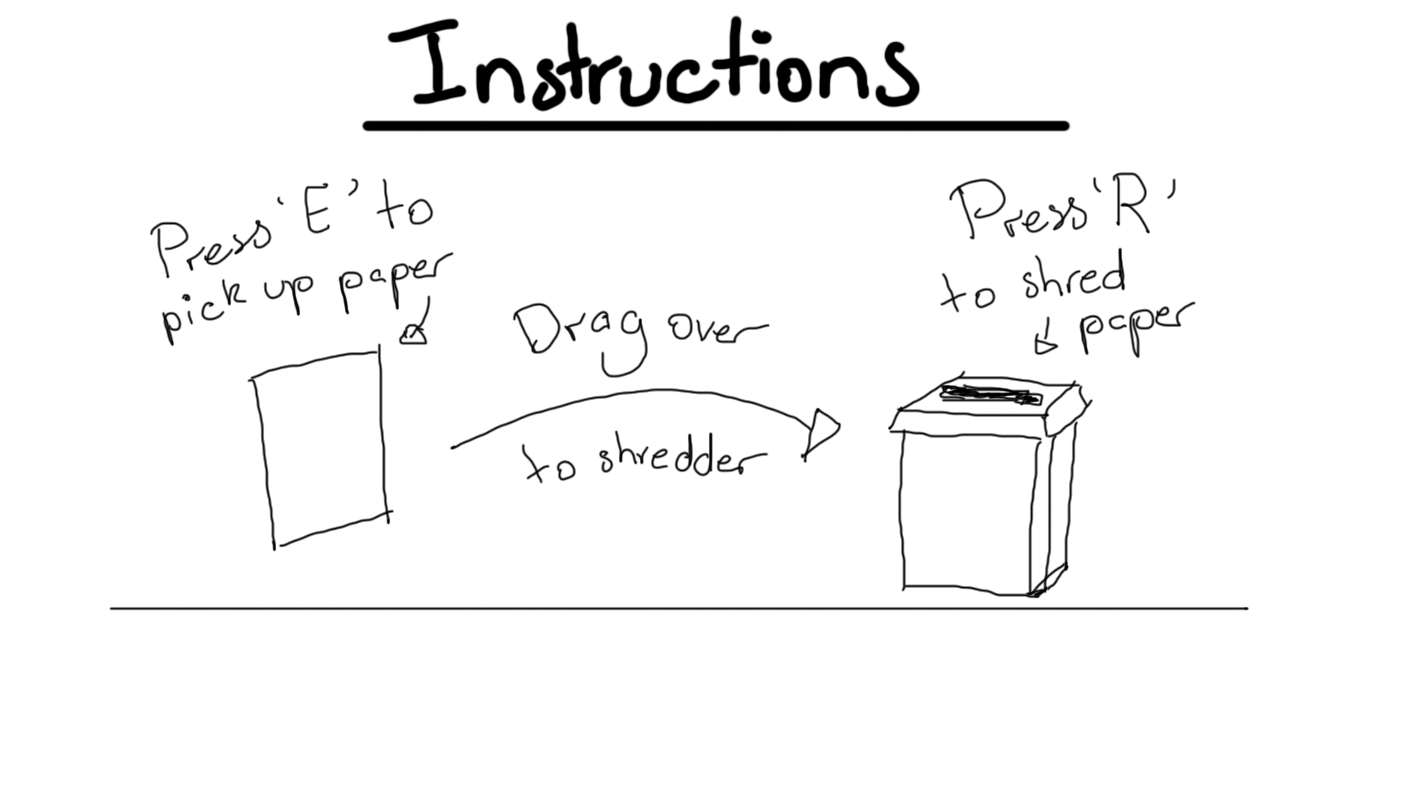 Instructions
Press 'E' to
pick up paper
Drag over
to shredder
Press 'R'
to shred
paper